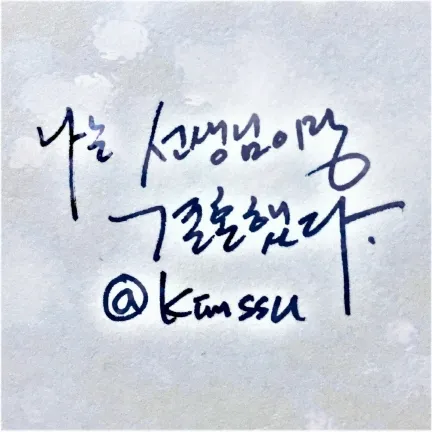 나는 선생님이랑
결혼했다.
@kimssu